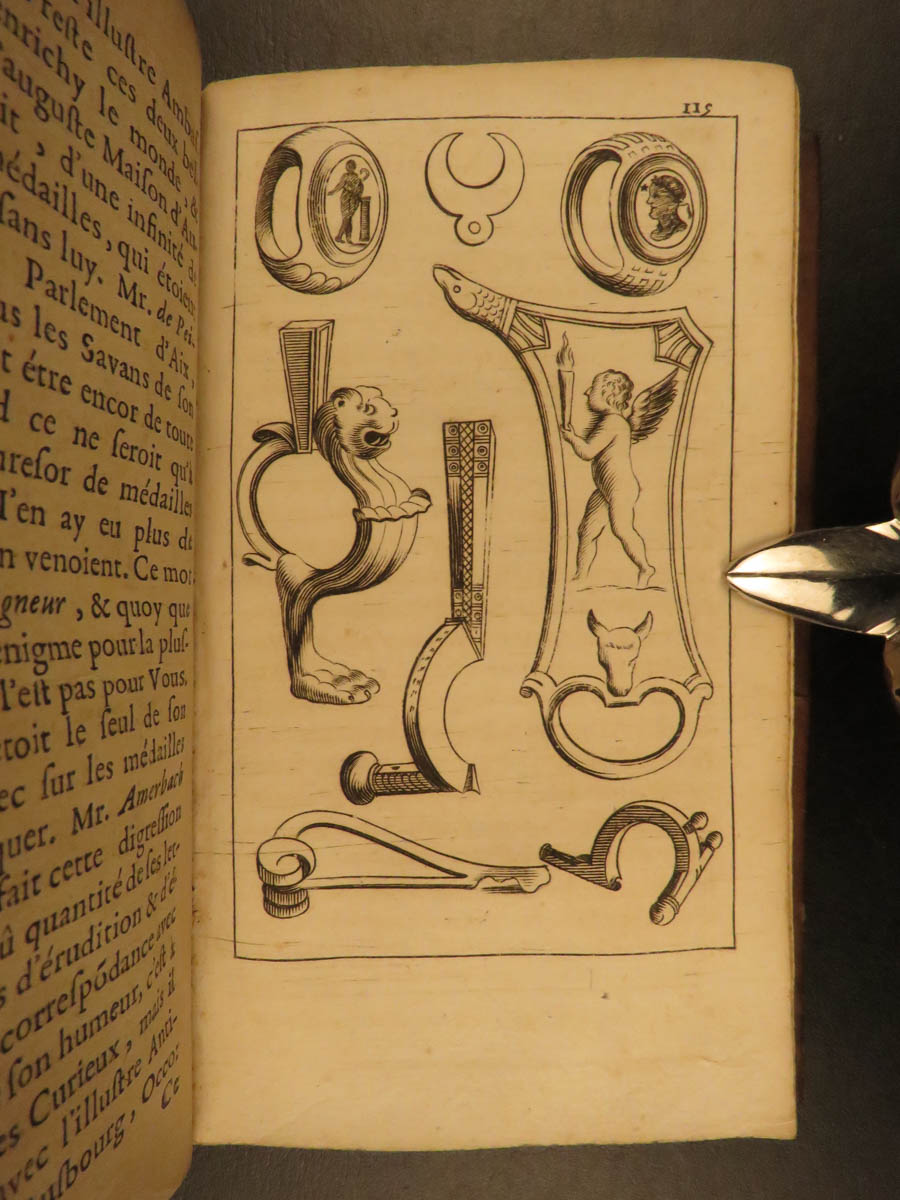 l'illuſtre Ambaſ
reſte ces deux bel
enrichy le monde, &
'auguſte Maiſon d'Au-
it, d'une infinité de
médailles, qui étoient
ſans luy. Mr. de Pei-
Parlement d'Aix,
us les Savans de ſon
t étre encor de toute
d ce ne ſeroit qu'à
hreſor de médailles
J'en ay eu plus de
n venoient. Ce mot
igneur, & quoy que
enigme pour la pluſ-
l'eſt pas pour Vous.
étoit le ſeul de ſon
ec ſur les médailles
quer. Mr. Amerbach
fait cette digreſſion
û quantité de ſes let-
s d'érudition & d'é-
correſpõdance avec
ſon humeur, c'eſt à
es Curieux, mais il
avec l'illuſtre Anti-
usbourg, Occo:
Ce
115